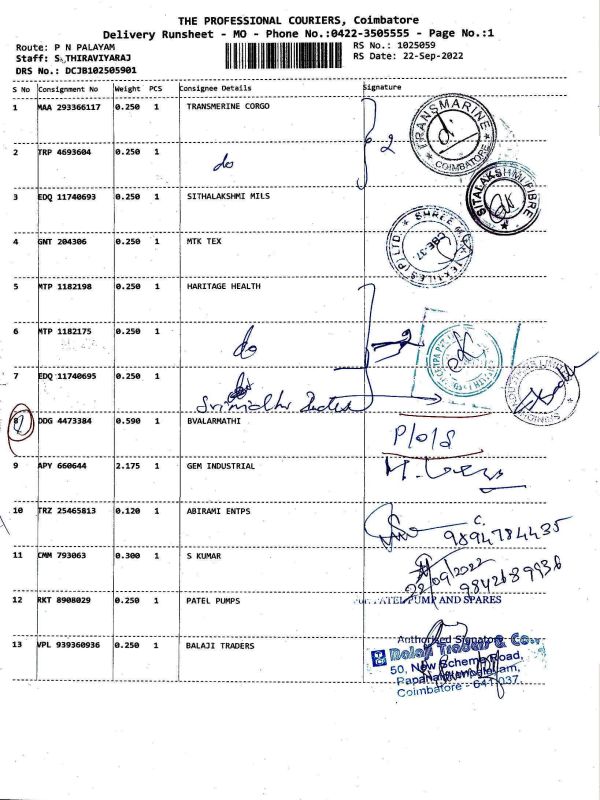 THE PROFESSIONAL COURIERS, Coimbatore
Delivery Runsheet - MO - Phone No.:0422-3505555 - Page No.:1
Route: P N PALAYAM RS No.: 1025059
Staff: S THIRAVIYARAJ RS Date: 22-Sep-2022
DRS No.: DCJB102505901
S No Consignment No Weight PCS Consignee Details Signature
1 MAA 293366117 0.250 1 TRANSMERINE CORGO
2 TRP 4693604 0.250 1 do 2
TRANSMARINE COIMBATORE
3 EDQ 11740693 0.250 1 SITHALAKSHMI MILS
SITALAKSHMI FIBRE
4 GNT 204306 0.250 1 MTK TEX
SHREE TEXTILES (P) LTD. CBE-37.
5 MTP 1182198 0.250 1 HARITAGE HEALTH
6 MTP 1182175 0.250 1 do
7 EDQ 11740695 0.250 1 do
8 DDG 4473384 0.590 1 BVALARMATHI P/O/S
9 APY 660644 2.175 1 GEM INDUSTRIAL
10 TRZ 25465813 0.120 1 ABIRAMI ENTPS C. 9894784435
11 CMM 793063 0.300 1 S KUMAR 22/09/2022
9842689936
12 RKT 8908029 0.250 1 PATEL PUMPS PATEL PUMP AND SPARES
Authorised Signatory
13 VPL 939360936 0.250 1 BALAJI TRADERS Balaji Traders & Co.,
50, New Scheme Road,
Coimbatore - 641 037